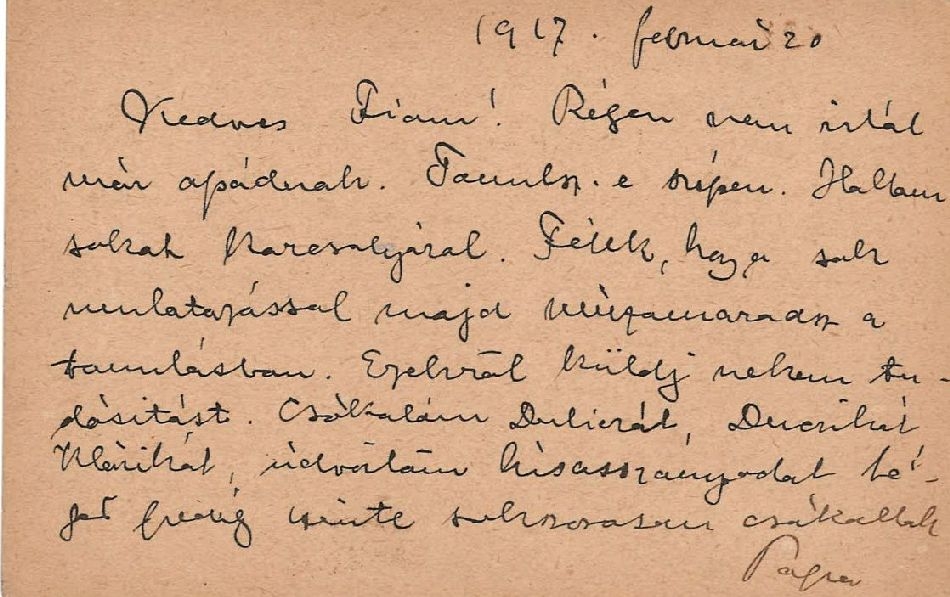 1917. februar 20
Kedves Fiam! Régen nem irtál
már apádnak. Tanulsz-e szépen. Hallom
sokat Félek, hogy a sok
mulatozással majd a
tanulásban. Ezekről küldj nekem tu-
dósitást. Csókolám Duciczát, Ducikát
Klárikát, üdvözlöm kisasszonyodat té-
ged pedig szinte sokszorosan csókollak
Papa